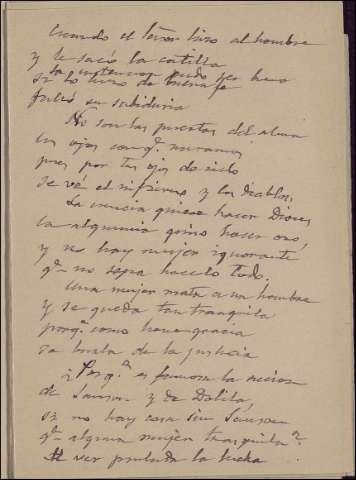 Cuando el Señor hizo al hombre
y le sacó la costilla
su intencion pudo ser buena
si lo hizo de buena fe
falló su sabiduria
No son las puertas del alma
los ojos conq.e miramos
pues por tus ojos de cielo
se vé el infierno y los diablos.
La ciencia quiere hacer Dioses
la alquimia quiso hacer oro,
y no hay mujer ignorante
q.e no sepa hacerlo todo.
Una mujer mata a un hombre
y se queda tan tranquila
porq.e como hace gracia
se burla de la justicia
¿Porq.e es famosa la
de Sanson y de Dalila,
si no hay casa sin Sanson
q.e alguna mujer trasquila?
ver probada la lucha